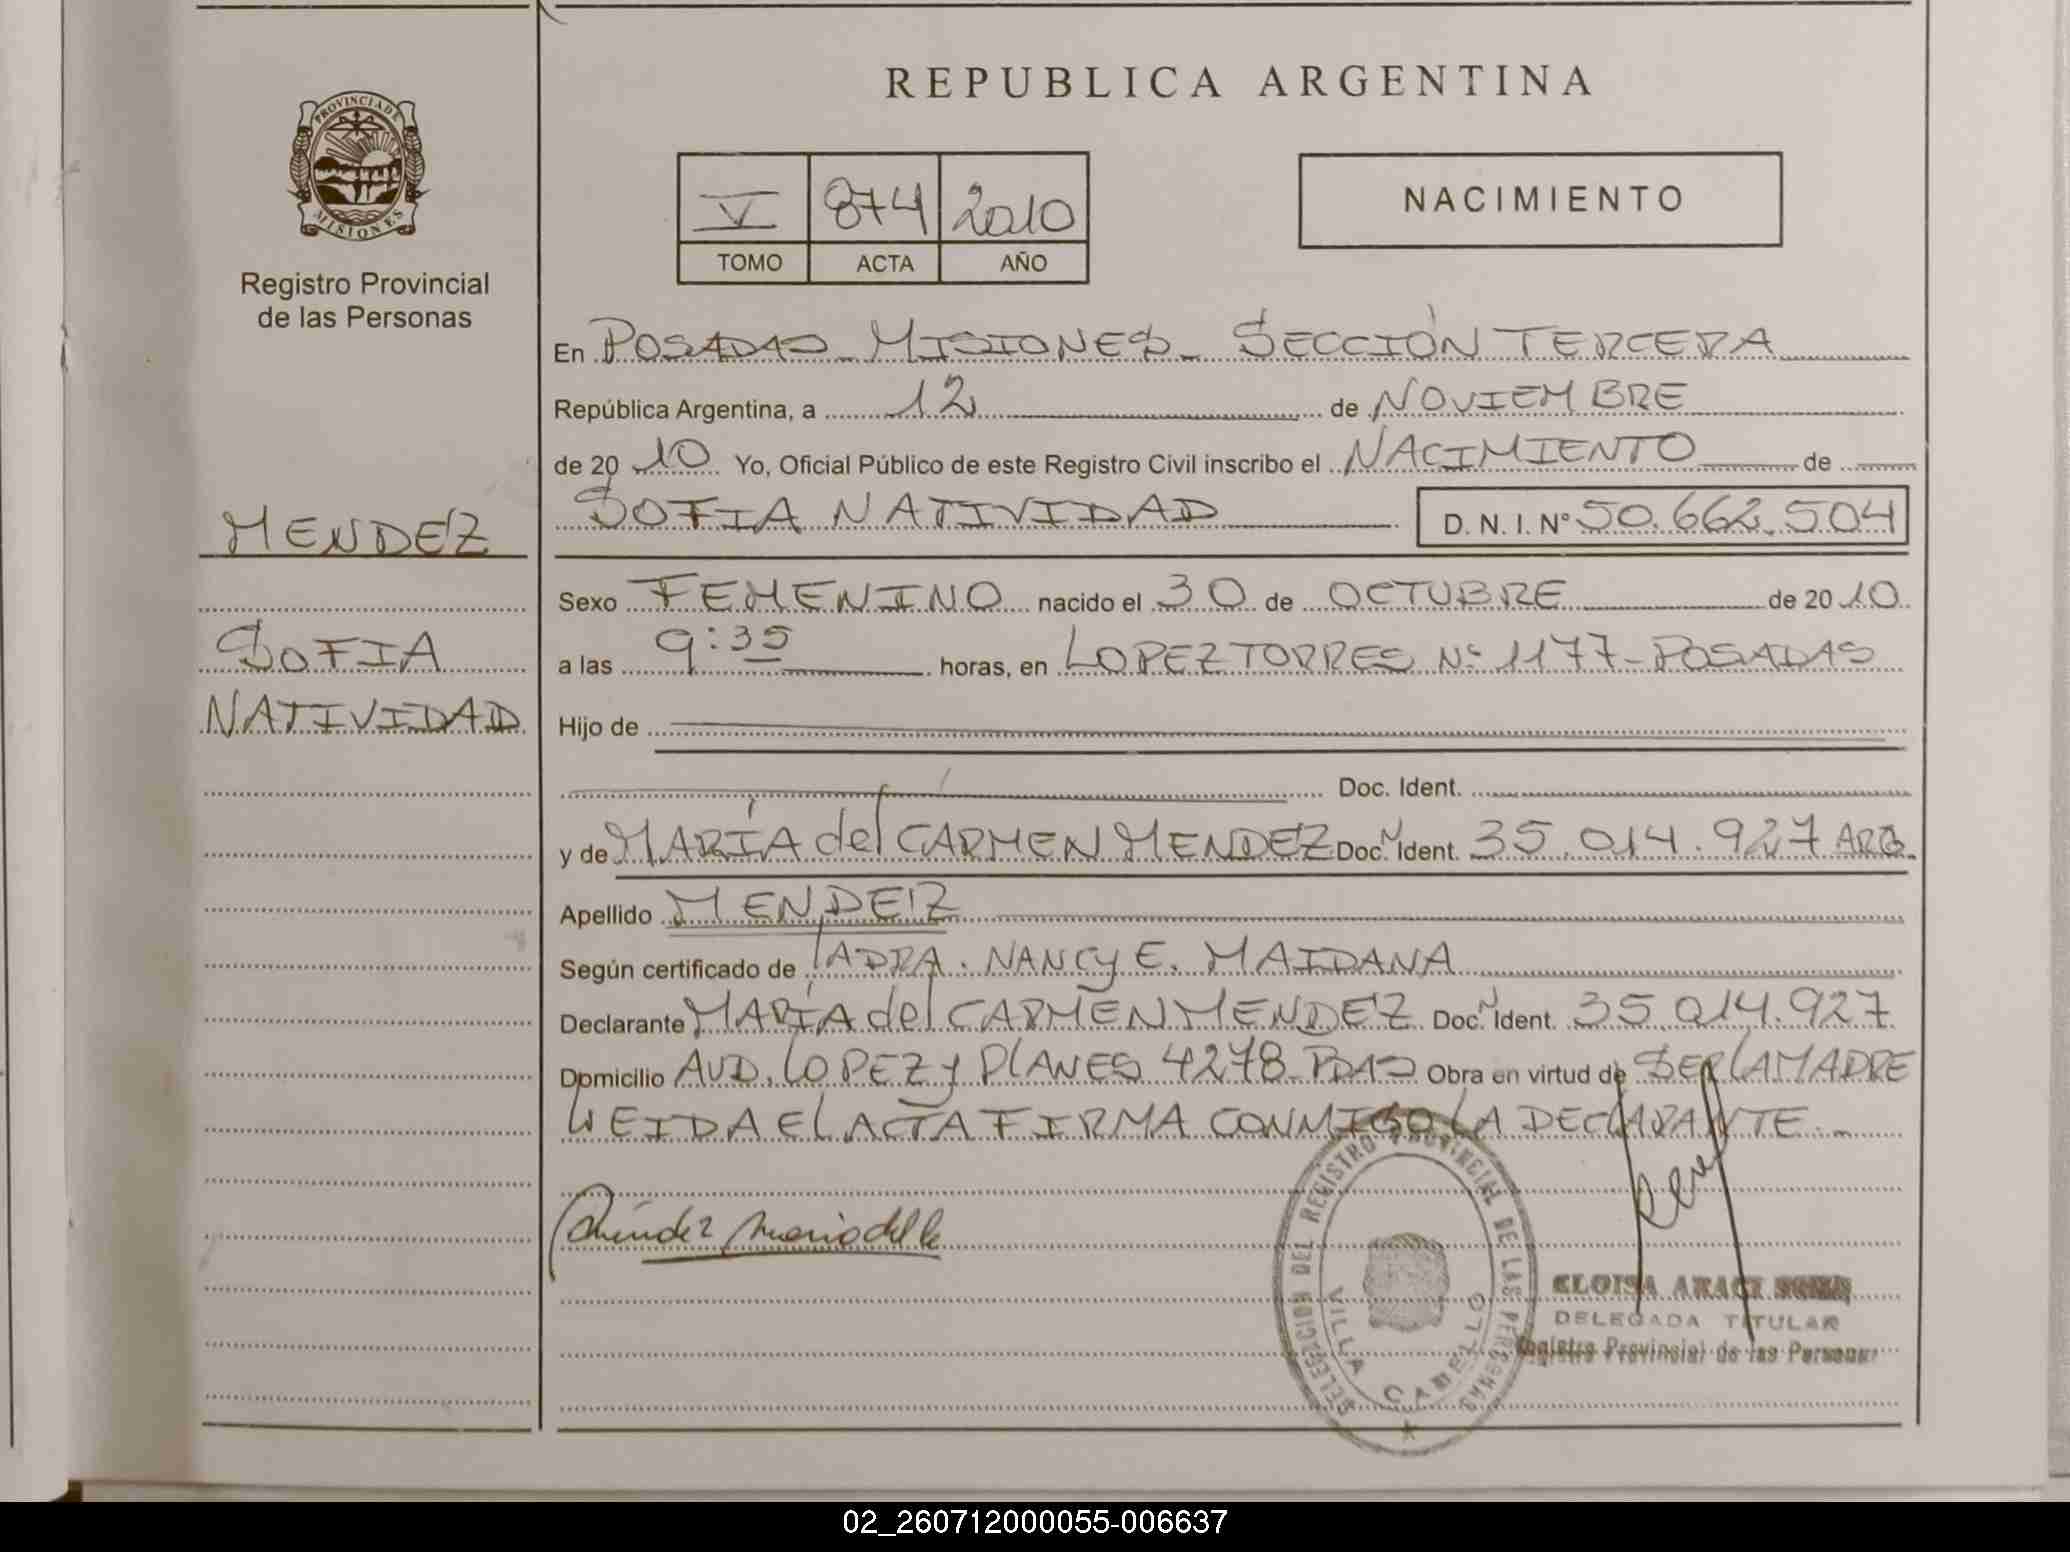 REPUBLICA ARGENTINA
PROVINCIA DE
MISIONES
Registro Provincial
de las Personas
V 874 2010
TOMO ACTA AÑO
NACIMIENTO
En POSADAS MISIONES SECCIÓN TERCERA
República Argentina, a 12 de NOVIEMBRE
de 2010 Yo, Oficial Público de este Registro Civil inscribo el NACIMIENTO de
SOFIA NATIVIDAD D. N. I. Nº 50.662.504
MENDEZ
SOFIA
NATIVIDAD
Sexo FEMENINO nacido el 30 de OCTUBRE de 2010
a las 9:35 horas, en LOPEZ TORRES Nº 1177-POSADAS
Hijo de
Doc. Ident.
y de MARÍA del CARMEN MENDEZ Doc. Ident. 35.014.927 ARG
Apellido MENDEZ
Según certificado de LA DRA. NANCY E. MAIDANA
Declarante MARÍA del CARMEN MENDEZ Doc. Ident. 35.014.927
Domicilio AVD. LOPEZ y PLANES 4278 PDAS Obra en virtud de SER LA MADRE
LEIDA EL ACTA FIRMA CONMIGO LA DECLARANTE.
Méndez Maria del C
DELEGACION DEL REGISTRO PROVINCIAL DE LAS PERSONAS
VILLA CABELLO
ELOISA ARACI
DELEGADA TITULAR
Registro Provincial de las Personas
02_260712000055-006637